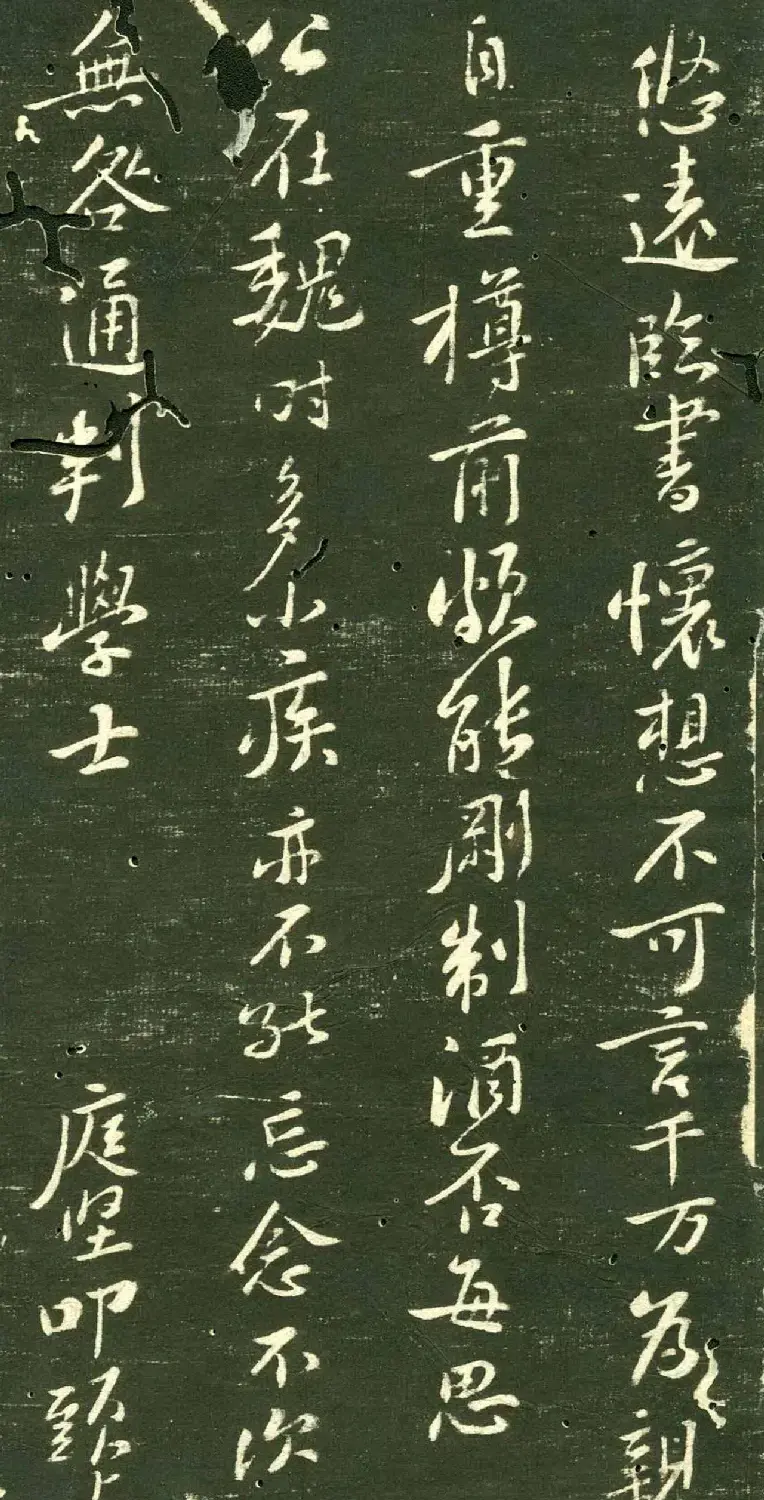 悠遠臨書懷想不可言千万為親
自重樽前頗能剛制酒否每思
公在魏時多小疾亦不能忘念不次
無咎通判學士 庭坚叩頭上